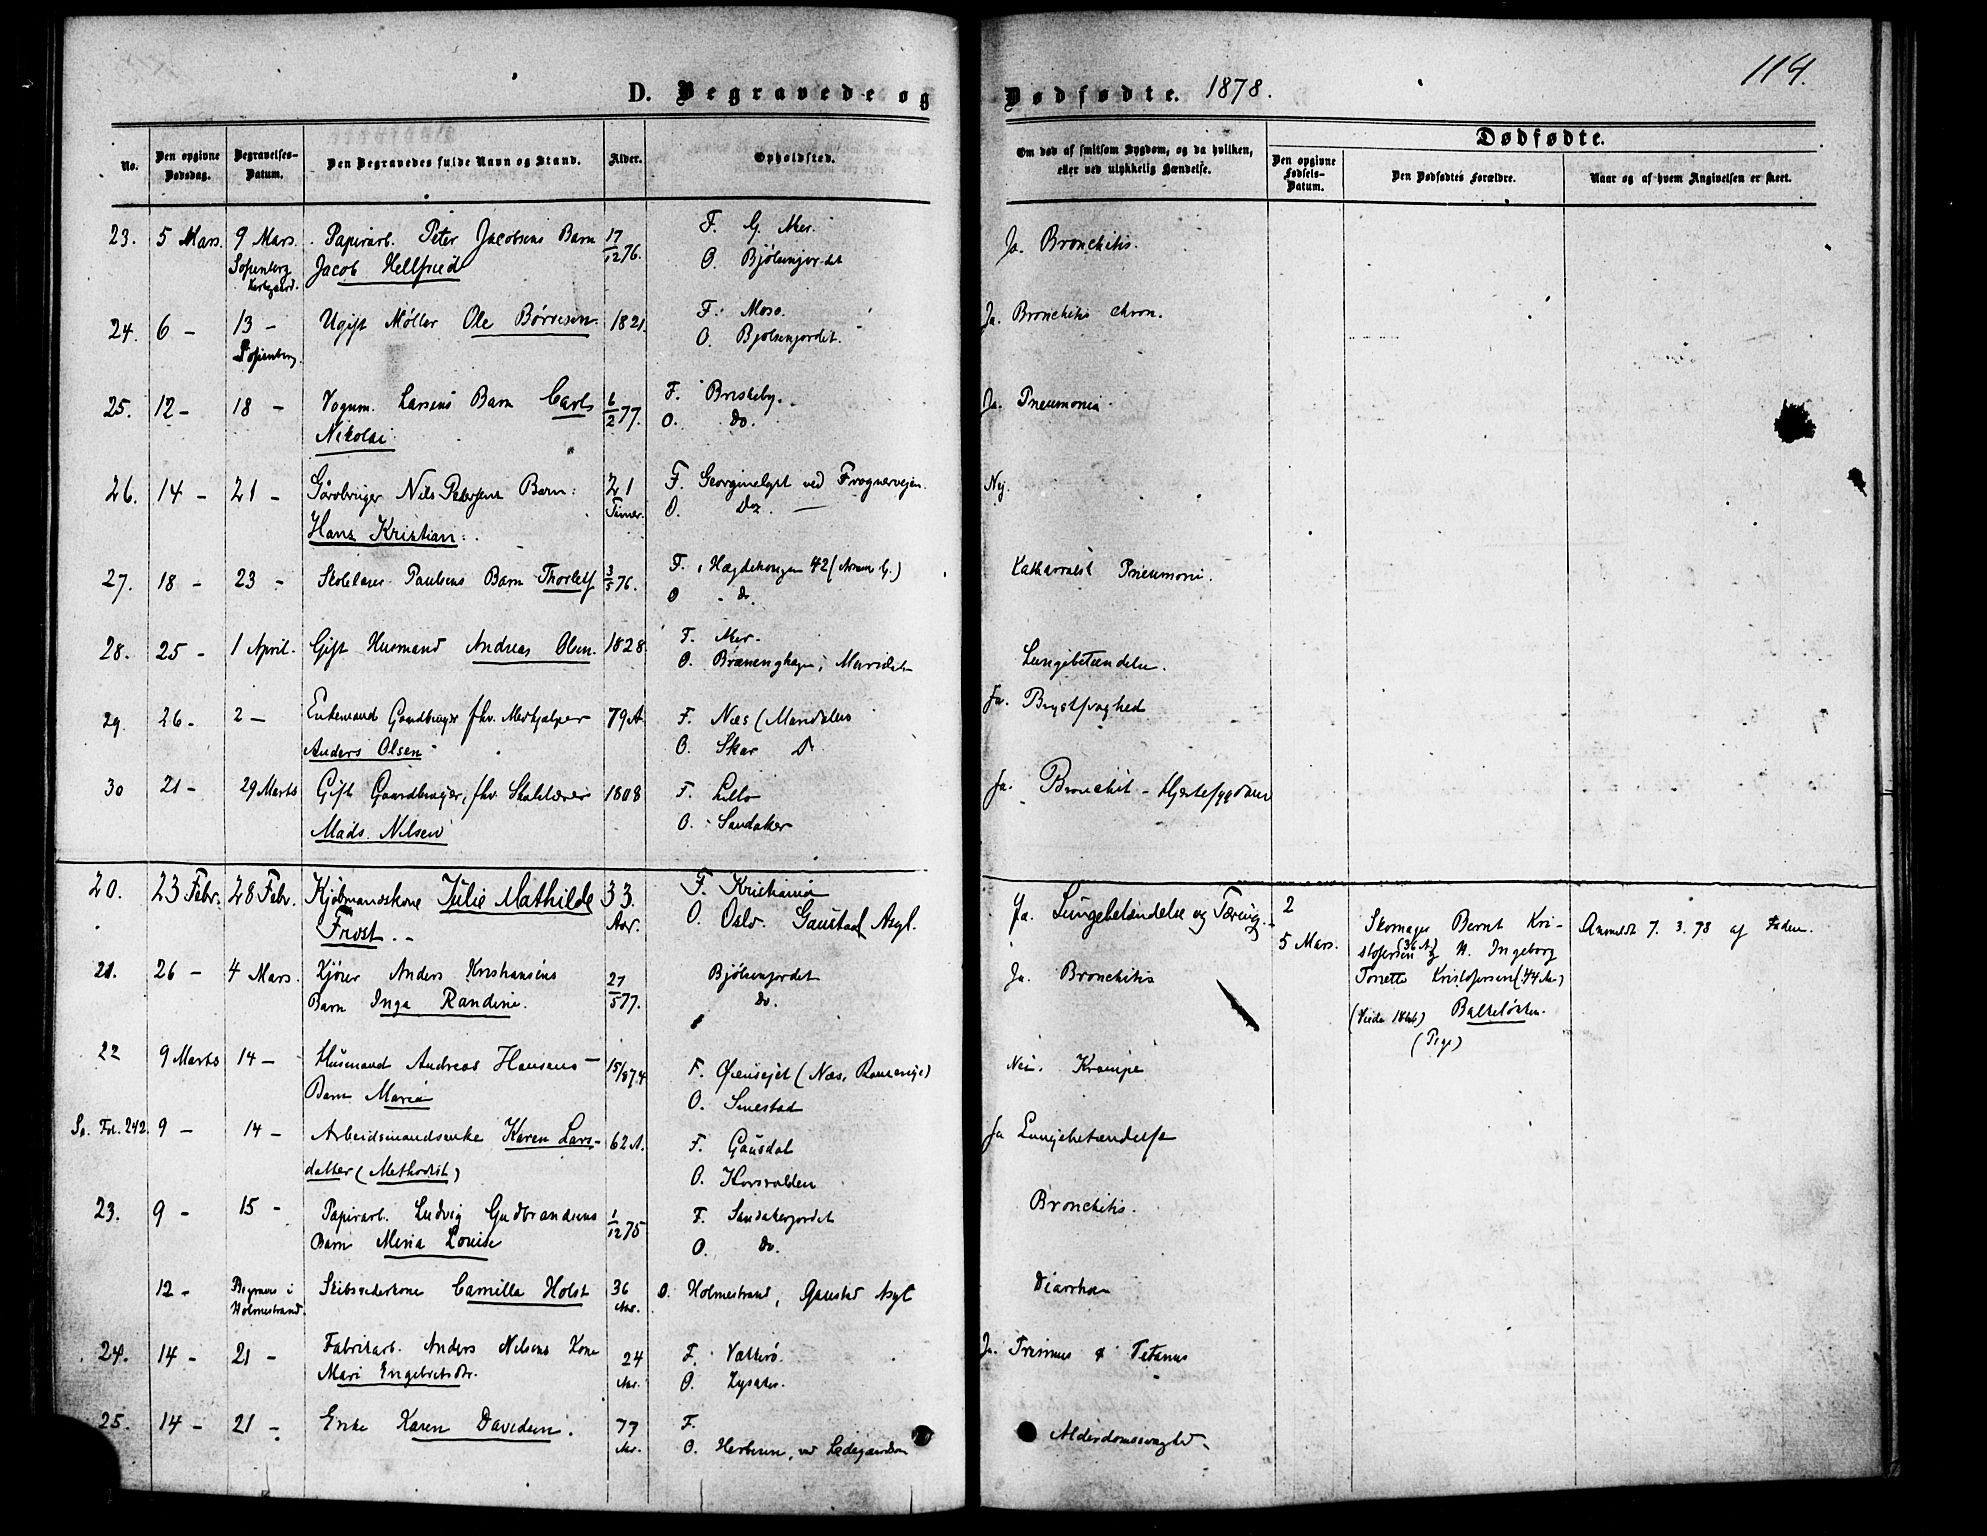 D. Begravede og Dødfødte. 1878. 114.
No.
Den opgivne Dødsdag.
Begravelses-Datum.
Den Begravedes fulde Navn og Stand.
Alder.
Opholdsted.
Om død af smitsom Sygdom, og da hvilken, eller ved ulykkelig Hændelse.
Dødfødte.
Den opgivne Fødsels-Datum.
Den Dødfødtes Forældre.
Naar og af hvem Angivelsen er skeet.
23. 5 Mars. 9 Mars. Papirarb. Peter Jacobsens Barn 17/12 76. F. G. Aker. Ja. Bronchitis.
Sofienberg Jacob Hellfried O. Bjølsenjordet
24. 6 - 13 - Ugift Møller Ole Børresen. 1821. F. Moss. Ja. Bronchitis chron.
Sofienberg O. Bjølsenjordet.
25. 12 - 18 - Vognm. Larsens Barn Carl 6/2 77. F. Briskeby. Ja. Pneumonia
Nikolai O. do.
26. 14 - 21 - Gårdbruger Nils Petersens Barn: 21 F. ved Frognerveien. Nej.
Hans Kristian. Timer. O.
27. 18 - 23 - Skolelærer Paulsens Barn Thorleif 3/5 76. F. Hægdehougen 42 Katharralsk Pneumoni.
O - do.
28. 25 - 1 April. Gift Husmand Andreas Olsen. 1828. F. Aker. Lungebetændelse.
O. Maridal
29. 26 - 2 - Enkemand Gaardbruger fhv. Medhjælper 79 A. F. Næs Ja. Brystsvaghed
Anders Olsen O. Skar
30 21 - 29 Marts Gift Gaardbruger, fhv. Skolelærer 1808 F. Lillo Ja. Bronchit - Hjertesygdom
Mads Nilsen O. Sandaker
20. 23 Febr. 28 Febr. Kjøbmandskone Julie Mathilde 33. F. Kristiania Ja. Lungebetændelse og Tæring. 2
Frost. Aar. O. Oslo. Gaustad Asyl.
5 Mars. Skomager Bernt Kri-
stofersen (36 A) H. Ingeborg
Tonette Kristofersen (44 Aar)
Balkeløkken.
(Pige)
Anmeldt 7. 3. 78 af Faderen.
21. 26 - 4 Mars. Kjører Anders Kristiansens 27/5 77. Bjølsenjordet Ja. Bronchitis
Barn Inga Randine. do.
22 9 Marts 14 - Husmand Andreas Hansens F. (Næs, Romerige) Nei. Krampe
Barn Maria O. Smestad
Se. Fol. 242. 9 - 14 - Arbeidsmandsenke Karen Lars- 62 A. F. Gausdal Ja Lungebetændelse
datter (Methodist) O. Korsvolden
23. 9 - 15 - Papirarb. Ludvig Gudbrandsens 1/12 75 F. Sandakerjordet Bronchitis.
Barn Maria Louise O. do.
12 - Begraves i Skibsrederkone Camilla Holst 36 O. Holmestrand, Gaustad Asyl Diarrhoe
Holmestrand. Aar.
24. 14 - 21 - Fabrikarb. Anders Nilsens Kone 24 F. Vækkerø. Ja. Trismus & Tetanus
Mari Engebretsdtr. Aar. O. Lysaker.
25. 14 - 21 - Enke Karen Davidsen. 77 F. Alderdomssvaghed.
Aar. O. ved Ladegaardsøen